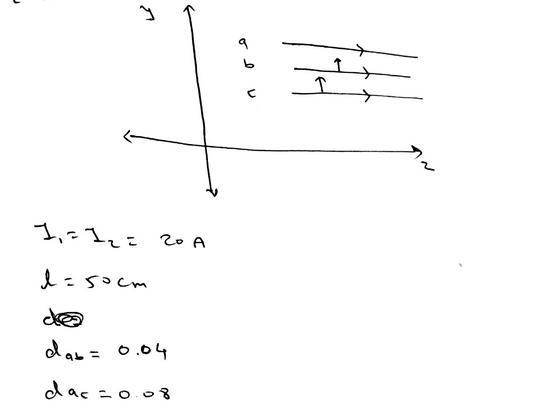 y
a
b
c
z
I₁ = I₂ = 20 A
l = 50 cm
d_ab = 0.04
d_ac = 0.08